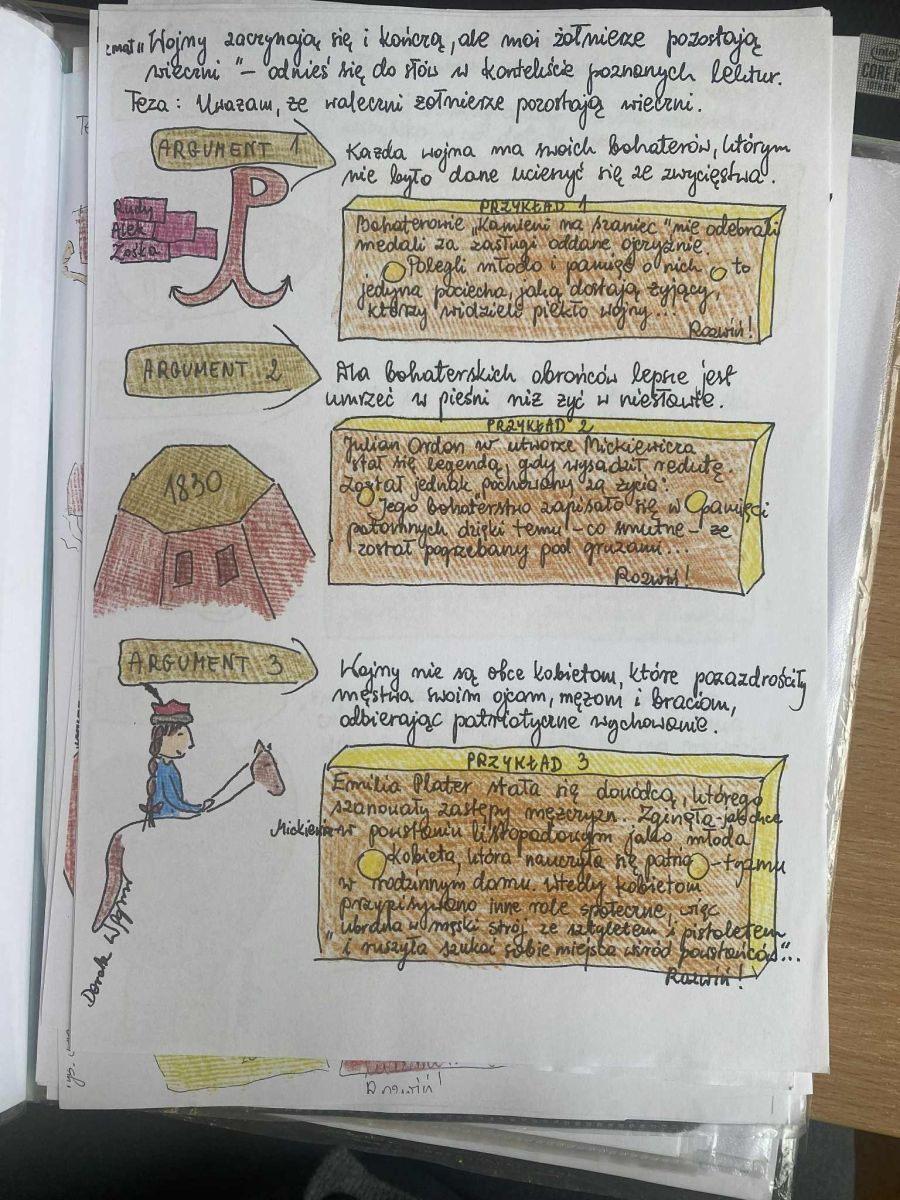 temat „Wojny zaczynają się i kończą, ale moi żołnierze pozostają
wieczni" – odnieś się do słów w kontekście poznanych lektur.
Teza: Uważam, że waleczni żołnierze pozostają wieczni.
ARGUMENT 1
Każda wojna ma swoich bohaterów, którym
nie było dane ucieszyć się ze zwycięstwa.
Rudy
Alek
Zośka
P
PRZYKŁAD 1
Bohaterowie „Kamieni na szaniec" nie odebrali
medali za zasługi oddane ojczyźnie.
Polegli młodo i pamięć o nich to
jedyna pociecha, jaką dostają żyjący,
którzy widzieli piekło wojny...
Rozwiń!
ARGUMENT 2
Dla bohaterskich obrońców lepsze jest
umrzeć w pieśni niż żyć w niesławie.
1830
PRZYKŁAD 2
Julian Ordon w utworze Mickiewicza
"stał się legendą, gdy wysadził redutę.
Został jednak pochowany za życia".
Jego bohaterstwo zapisało się w pamięci
potomnych dzięki temu – co smutne – że
został pogrzebany pod gruzami...
Rozwiń!
ARGUMENT 3
Wojny nie są obce kobietom, które pozazdrościły
męstwa swoim ojcom, mężom i braciom,
odbierając patriotyczne wychowanie.
PRZYKŁAD 3
Emilia Plater stała się dowódcą, którego
szanowały zastępy mężczyzn. Zginęła jak chce
Mickiewicz w powstaniu listopadowym jako młoda
kobieta, która nauczyła się patrio-tyzmu
w rodzinnym domu. Wtedy kobietom
przypisywano inne role społeczne, więc
"ubrana w męski strój ze sztyletem i pistoletem
i ruszyła szukać sobie miejsca wśród powstańców"...
Rozwiń!
Rozwiń!
intel
CORE i5